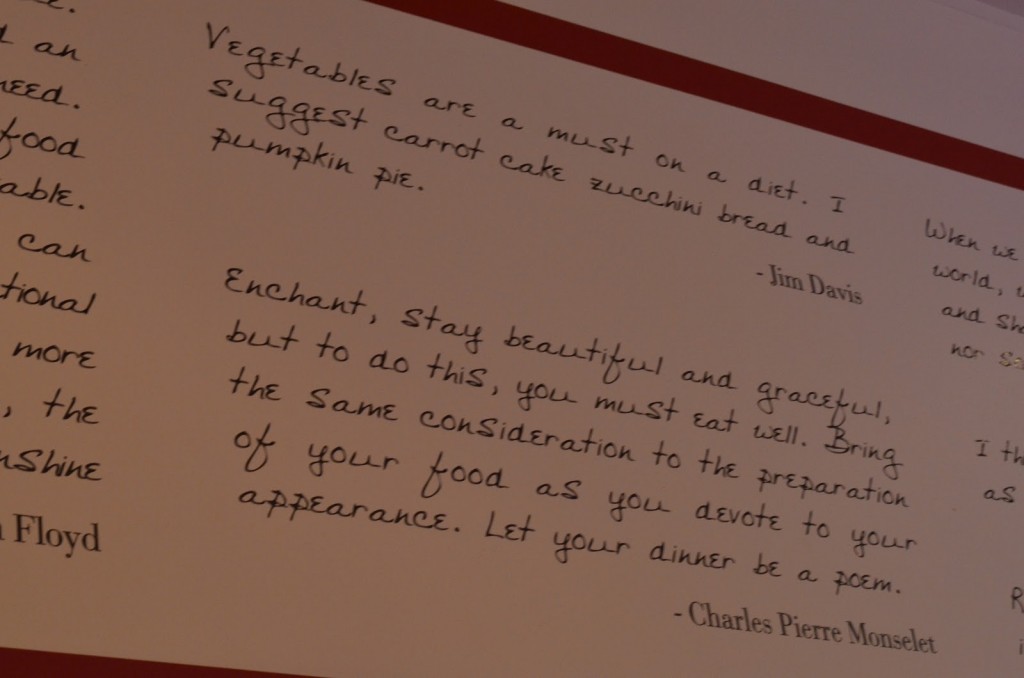 an
food
can
more
, the
Floyd
Vegetables are a must on a diet. I
suggest carrot cake zucchini bread and
pumpkin pie.
- Jim Davis
Enchant, stay beautiful and graceful,
but to do this, you must eat well. Bring
the same consideration to the preparation
of your food as you devote to your
appearance. Let your dinner be a poem.
- Charles Pierre Monselet
When we
world,
and
nor
I
as